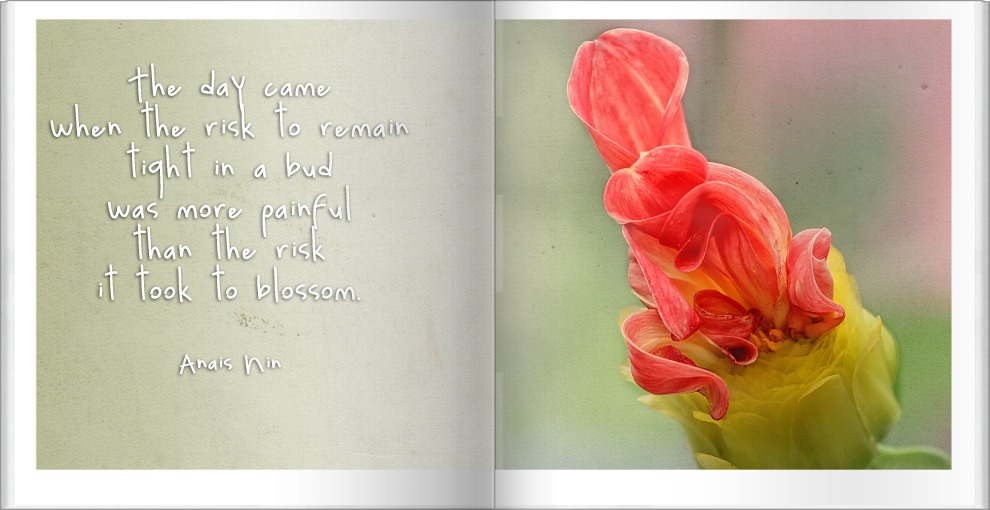 the day came
when the risk to remain
tight in a bud
was more painful
than the risk
it took to blossom.
Anais Nin